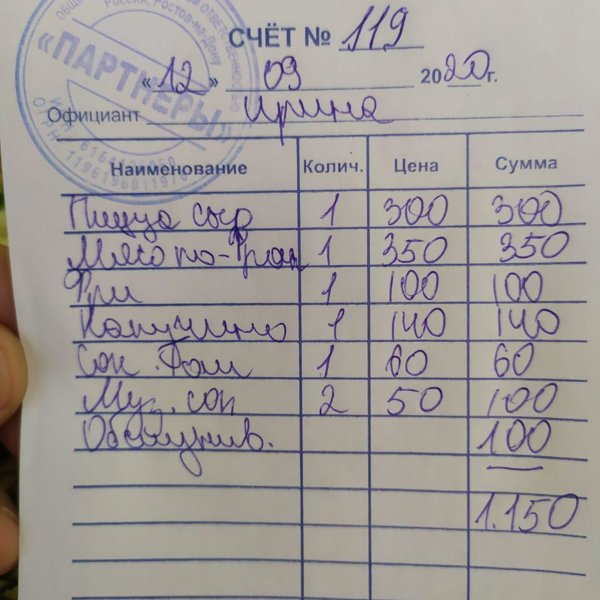 СЧЁТ № 119
«12» 09 2020г.
Официант Ирина
«ПАРТНЕРЫ»
Россия, Ростов-на-Дону
Наименование Колич. Цена Сумма
Пицца сыр 1 300 300
Мясо по-фран 1 350 350
Фри 1 100 100
Капучино 1 140 140
Сок. 1 60 60
Муз. соп 2 50 100
Обслужив. 100
1.150